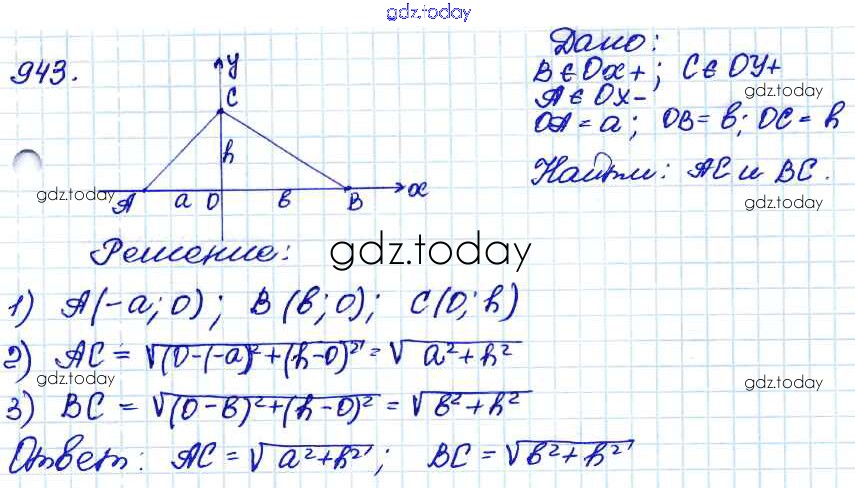 gdz.today
943.
y
C
h
A a O b B x
gdz.today
Дано:
B ∈ Ox+; C ∈ OY+
gdz.today
A ∈ Ox-
OA = a; OB = b; OC = h
Найти: AC и BC.
gdz.today
Решение:
gdz.today
1) A(-a; 0); B(b; 0); C(0; h)
2) AC = √(0-(-a)² + (h-0)² = √a² + h²
gdz.today
gdz.today
3) BC = √(0-b)² + (h-0)² = √b² + h²
Ответ: AC = √a² + h²; BC = √b² + h²